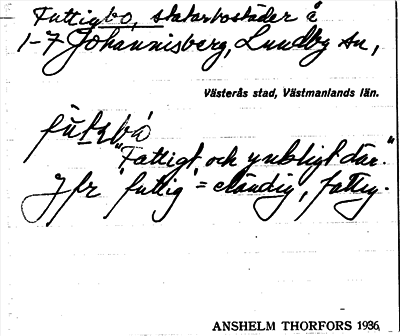 Futtigbo, statarbostäder å
1-7 Johannisberg, Lundby sn,
Västerås stad, Västmanlands län.
"Fattigt och ynkligt där."
Jfr futtig = eländig, fattig.
ANSHELM THORFORS 1936